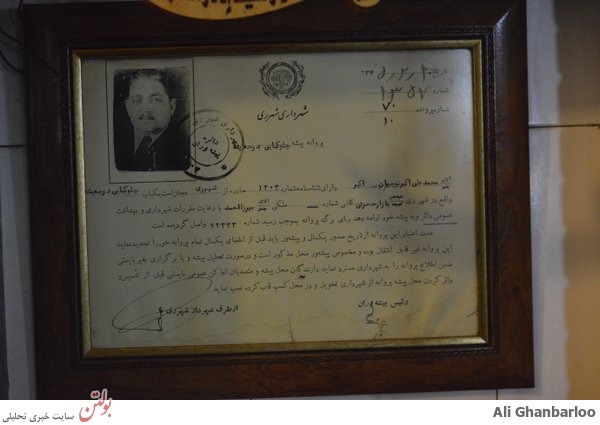 تاریخ ۱۳۴
شماره ۱۳۵۷
۷۰
شماره پروانه
۱۰
شهرداری شهرری
پروانه پیشه چلوکبابی درجه یک
دایره پیشه وران
محمد علی اکبر نوجوان اکبر دارای شناسنامه شماره ۱۳۰۲ صادره از شهرری مجاز است یکباب چلوکبابی درجه یک
واقع در شهر ری کاشی شماره ملکی میرزا احمد با رعایت مقررات شهرداری و بهداشت
عمومی دائر و به پیشه خود ادامه دهد بهای برگه پروانه بموجب رسید شماره ۲۴۴۳۳ واصل گردیده است
مدت اعتبار این پروانه از تاریخ صدور یکسال و پیشه‌ور باید قبل از انقضای یکسال تمام پروانه خود را تجدید نماید
این پروانه غیر قابل انتقال بوده و مخصوص پیشه‌ور محل مذکور است و در صورت تعطیل پیشه و یا برگذاری بغیر بایستی
ضمن اطلاع پروانه را به شهرداری مسترد نماید دارندگان محل پیشه و متصدیان اماکن عمومی بایستی قبل از تأسیس و
دائر کردن محل پیشه پروانه از شهرداری تحویل و در محل کسب قاب کرده نصب نماید
رئیس پیشه وران
از طرف شهردار شهرری
بولتن سایت خبری تحلیلی
Ali Ghanbarloo